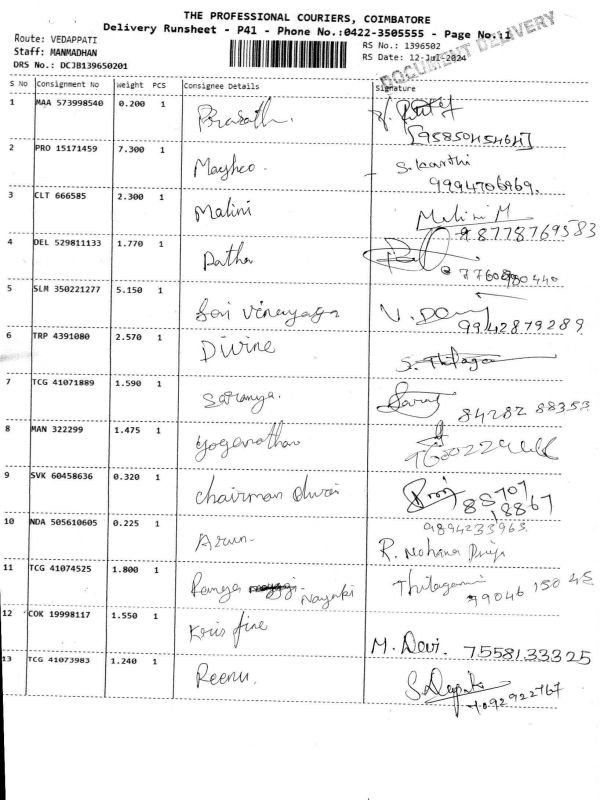 THE PROFESSIONAL COURIERS, COIMBATORE
Delivery Runsheet - P41 - Phone No.:0422-3505555 - Page No.:1
Route: VEDAPPATI
Staff: MANMADHAN
DRS No.: DCJB139650201
RS No.: 1396502
RS Date: 12-Jul-2024
DOCUMENT DELIVERY
S No Consignment No Weight PCS Consignee Details Signature
1 MAA 573998540 0.200 1 Prasath.
2 PRO 15171459 7.300 1 S. Karthi
9994706969.
3 CLT 666585 2.300 1 Malini Malini M
8778769583
4 DEL 529811133 1.770 1
5 SLM 350221277 5.150 1 Sai Vinayaga V. Devi
9942879289
6 TRP 4391080 2.570 1 Divine S. Thilaga
7 TCG 41071889 1.590 1 Saranya.
84282 88353
8 MAN 322299 1.475 1 Yoganathan
9 SVK 60458636 0.320 1 Chairman
88707
18867
10 NDA 505610605 0.225 1 Arun. 9894233963
R. Mohana Priya
11 TCG 41074525 1.800 1 Ramya Nayaki Thilagam
99046 150 45
12 COK 19998117 1.550 1 Kris fine M. Devi. 7558133325
13 TCG 41073983 1.240 1 Reenu.